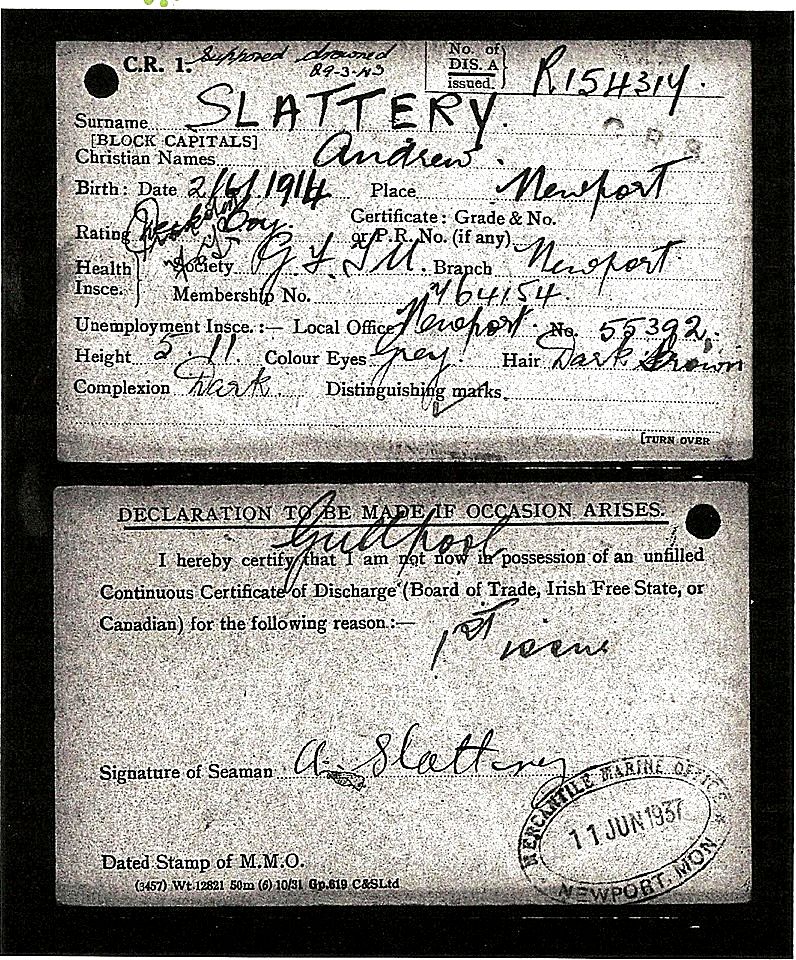 C.R. 1. Supposed drowned
29-3-43
No. of
DIS. A
issued.
R154314.
Surname SLATTERY.
[BLOCK CAPITALS]
Christian Names Andrew.
Birth: Date 1914 Place Newport
Certificate: Grade & No.
Rating Deck Boy or P.R. No. (if any)
Health Society Branch Newport.
Insce. Membership No. 764154.
Unemployment Insce. :— Local Office Newport. No. 55392.
Height 5 11 Colour Eyes grey. Hair Dark Brown
Complexion Dark Distinguishing marks
[TURN OVER
DECLARATION TO BE MADE IF OCCASION ARISES.
Gullpool
I hereby certify that I am not now in possession of an unfilled
Continuous Certificate of Discharge (Board of Trade, Irish Free State, or
Canadian) for the following reason.:—
1st issue
Signature of Seaman A. Slattery
MERCANTILE MARINE OFFICE
11 JUN 1937
NEWPORT. MON
Dated Stamp of M.M.O.
(3457) Wt.12821 50m (6) 10/31 Gp.619 C&SLtd